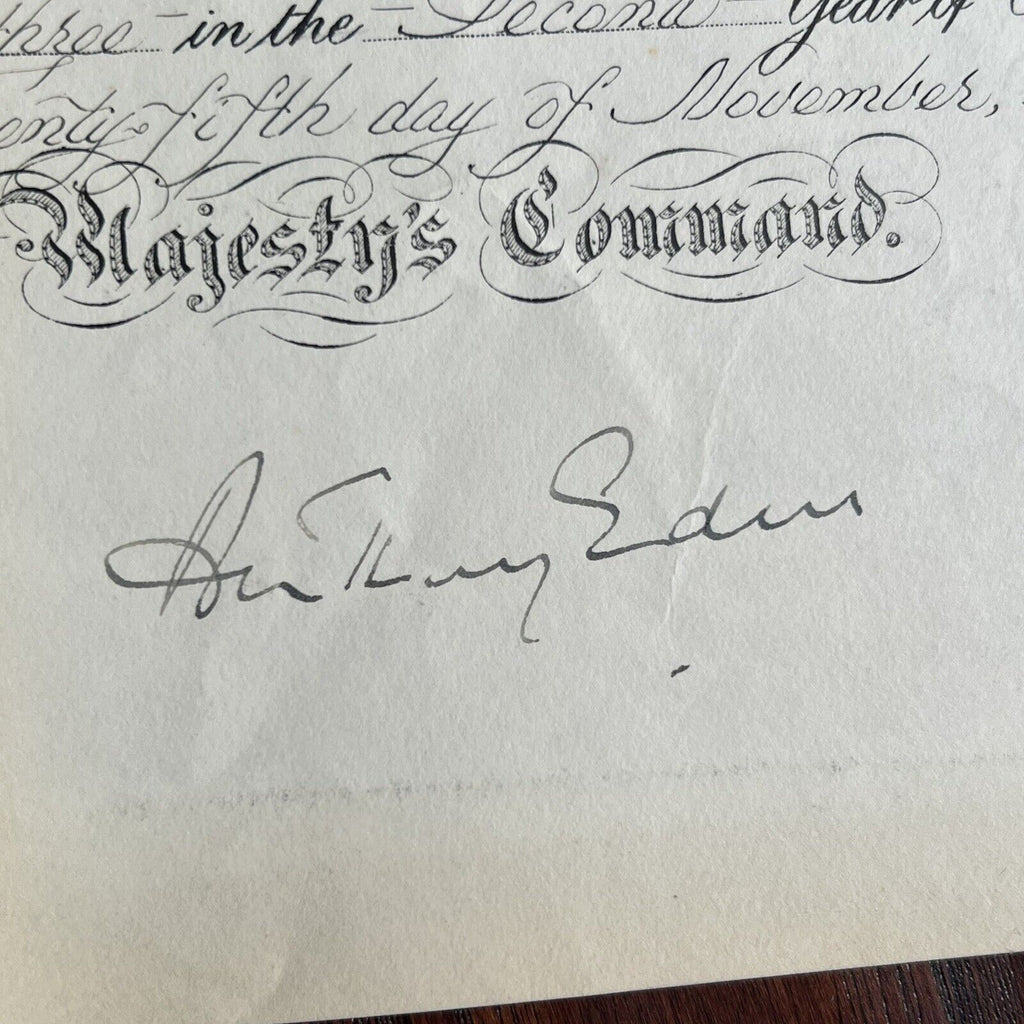 three - in the - Second - Year of
enty-fifth day of November,
Majesty's Command.
Anthony Eden